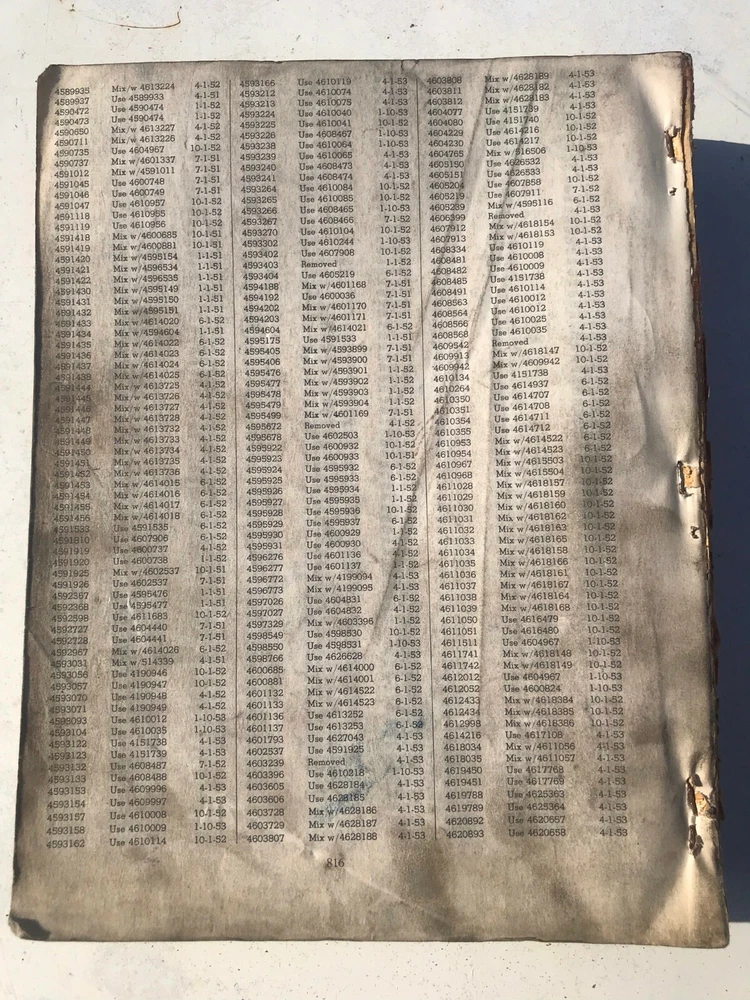 4589935 Mix/w 4613224 4-1-52
4589937 Use 4589933 4-1-51
4590472 Use 4590474 1-1-52
4590473 Use 4590474 1-1-52
4590650 Mix/w 4613227 4-1-52
4590711 Mix/w 4613226 4-1-52
4590735 Use 4604967 10-1-52
4590737 Mix w/4601337 7-1-51
4591012 Mix w/4591011 7-1-51
4591045 Use 4600748 7-1-51
4591046 Use 4600749 7-1-51
4591047 Use 4610957 10-1-52
4591118 Use 4610955 10-1-52
4591119 Use 4610956 10-1-52
4591418 Mix w/4600685 10-1-51
4591419 Mix w/4600881 10-1-51
4591420 Mix w/4595154 1-1-51
4591421 Mix w/4596534 1-1-51
4591422 Mix w/4596535 1-1-51
4591430 Mix w/4595149 1-1-51
4591431 Mix w/4595150 1-1-51
4591432 Mix w/4595151 1-1-51
4591433 Mix w/4614020 6-1-52
4591434 Mix w/4594604 1-1-51
4591435 Mix w/4614022 6-1-52
4591436 Mix w/4614023 6-1-52
4591437 Mix w/4614024 6-1-52
4591438 Mix w/4614025 6-1-52
4591444 Mix w/4613725 4-1-52
4591445 Mix w/4613726 4-1-52
4591446 Mix w/4613727 4-1-52
4591447 Mix w/4613728 4-1-52
4591448 Mix w/4613732 4-1-52
4591449 Mix w/4613733 4-1-52
4591450 Mix w/4613734 4-1-52
4591451 Mix w/4613735 4-1-52
4591452 Mix w/4613736 4-1-52
4591453 Mix w/4614015 6-1-52
4591454 Mix w/4614016 6-1-52
4591455 Mix w/4614017 6-1-52
4591456 Mix w/4614018 6-1-52
4591533 Use 4591535 6-1-52
4591810 Use 4607906 6-1-52
4591919 Use 4600737 4-1-52
4591920 Use 4600738 1-1-52
4591925 Mix w/4602537 10-1-51
4591926 Use 4602537 7-1-51
4592367 Use 4595476 1-1-51
4592368 Use 4595477 1-1-51
4592598 Use 4611683 10-1-52
4592727 Use 4604440 7-1-51
4592728 Use 4604441 7-1-51
4592967 Mix w/4614026 6-1-52
4593031 Mix w/514339 4-1-51
4593056 Use 4190946 10-1-52
4593057 Use 4190947 10-1-52
4593070 Use 4190948 4-1-52
4593071 Use 4190949 4-1-52
4593093 Use 4610012 1-10-53
4593104 Use 4610035 1-10-53
4593122 Use 4151738 4-1-53
4593123 Use 4151739 4-1-53
4593132 Use 4608487 7-1-52
4593133 Use 4608488 10-1-52
4593153 Use 4609996 4-1-53
4593154 Use 4609997 4-1-53
4593157 Use 4610008 10-1-52
4593158 Use 4610009 1-10-53
4593162 Use 4610114 10-1-52
4593166 Use 4610119 4-1-53
4593212 Use 4610074 4-1-53
4593213 Use 4610075 4-1-53
4593224 Use 4610040 1-10-53
4593225 Use 4610041 10-1-52
4593226 Use 4608467 1-10-53
4593238 Use 4610064 1-10-53
4593239 Use 4610065 4-1-53
4593240 Use 4608473 4-1-53
4593241 Use 4608474 4-1-53
4593264 Use 4610084 10-1-52
4593265 Use 4610085 10-1-52
4593266 Use 4608465 1-10-53
4593267 Use 4608466 7-1-52
4593270 Use 4610104 10-1-52
4593302 Use 4610244 1-10-53
4593402 Use 4607908 10-1-52
4593403 Removed 1-1-51
4593404 Use 4605219 6-1-52
4594188 Mix w/4601168 7-1-51
4594192 Use 4600036 7-1-51
4594202 Mix w/4601170 7-1-51
4594203 Mix w/4601171 7-1-51
4594604 Mix w/4614021 6-1-52
4595175 Use 4591533 1-1-51
4595405 Mix w/4593899 7-1-51
4595406 Mix w/4593900 7-1-51
4595476 Mix w/4593901 1-1-52
4595477 Mix w/4593902 1-1-52
4595478 Mix w/4593903 1-1-52
4595479 Mix w/4593904 1-1-52
4595499 Mix w/4601169 7-1-51
4595672 Removed 4-1-52
4595678 Use 4602503 1-10-53
4595922 Use 4600932 10-1-52
4595923 Use 4600933 10-1-51
4595924 Use 4595932 6-1-52
4595925 Use 4595933 6-1-52
4595926 Use 4595934 1-1-52
4595927 Use 4595935 1-1-52
4595928 Use 4595936 10-1-52
4595929 Use 4595937 6-1-52
4595930 Use 4600929 1-1-52
4595931 Use 4600930 4-1-52
4596276 Use 4601136 4-1-52
4596277 Use 4601137 1-1-52
4596772 Mix w/4199094 4-1-53
4596773 Mix w/4199095 4-1-53
4597026 Use 4604831 6-1-52
4597027 Use 4604832 4-1-52
4597329 Mix w/4603396 1-1-52
4598549 Use 4598530 10-1-52
4598550 Use 4598531 1-10-53
4598766 Use 4626628 4-1-53
4600685 Mix w/4614000 6-1-52
4600881 Mix w/4614001 6-1-52
4601132 Mix w/4614522 6-1-52
4601133 Mix w/4614523 6-1-52
4601136 Use 4613252 6-1-52
4601137 Use 4613253 6-1-52
4601793 Use 4627043 4-1-53
4602537 Use 4591925 4-1-52
4603239 Removed 4-1-53
4603396 Use 4610218 1-10-53
4603605 Use 4628184 4-1-53
4603606 Use 4628185 4-1-53
4603728 Mix w/4628186 4-1-53
4603729 Mix w/4628187 4-1-53
4603807 Mix w/4628188 4-1-53
4603808 Mix w/4628189 4-1-53
4603811 Mix w/4628182 4-1-53
4603812 Mix w/4628183 4-1-53
4604077 Use 4151739 4-1-53
4604080 Use 4151740 10-1-52
4604229 Use 4614216 10-1-52
4604230 Use 4614217 10-1-52
4604765 Mix w/516506 1-10-53
4605150 Use 4626532 4-1-53
4605151 Use 4626533 4-1-53
4605204 Use 4607858 10-1-52
4605219 Use 4607911 7-1-52
4605239 Mix w/4595116 6-1-52
4606399 Removed 4-1-53
4607912 Mix w/4618154 10-1-52
4607913 Mix w/4618153 10-1-52
4608334 Use 4610119 4-1-53
4608481 Use 4610008 4-1-53
4608482 Use 4610009 4-1-53
4608485 Use 4151738 4-1-53
4608491 Use 4610114 4-1-53
4608563 Use 4610012 4-1-53
4608564 Use 4610012 4-1-53
4608566 Use 4610025 4-1-53
4608568 Use 4610035 4-1-53
4609542 Removed 4-1-53
4609913 Mix w/4618147 10-1-52
4609942 Mix w/4609942 10-1-52
4610134 Use 4151738 4-1-53
4610264 Use 4614937 6-1-52
4610350 Use 4614707 6-1-52
4610351 Use 4614708 6-1-52
4610354 Use 4614711 6-1-52
4610355 Use 4614712 6-1-52
4610953 Mix w/4614522 6-1-52
4610954 Mix w/4614523 6-1-52
4610967 Mix w/4615503 10-1-52
4610968 Mix w/4615504 10-1-52
4611028 Mix w/4618157 10-1-52
4611029 Mix w/4618159 10-1-52
4611030 Mix w/4618160 10-1-52
4611031 Mix w/4618162 10-1-52
4611032 Mix w/4618163 10-1-52
4611033 Mix w/4618165 10-1-52
4611034 Mix w/4618158 10-1-52
4611035 Mix w/4618166 10-1-52
4611036 Mix w/4618161 10-1-52
4611037 Mix w/4618167 10-1-52
4611038 Mix w/4618164 10-1-52
4611039 Mix w/4618168 10-1-52
4611050 Use 4616479 10-1-52
4611051 Use 4616480 10-1-52
4611511 Use 4604967 1-10-53
4611741 Mix w/4618148 10-1-52
4611742 Mix w/4618149 10-1-52
4612012 Use 4604967 1-10-53
4612052 Use 4600824 1-10-53
4612433 Mix w/4618384 10-1-52
4612434 Mix w/4618385 10-1-52
4612998 Mix w/4618386 10-1-52
4614216 Use 4617108 4-1-53
4618034 Mix w/4611056 4-1-53
4618035 Mix w/4611057 4-1-53
4619450 Use 4617768 4-1-53
4619451 Use 4617769 4-1-53
4619788 Use 4625363 4-1-53
4619789 Use 4625364 4-1-53
4620892 Use 4620657 4-1-53
4620893 Use 4620658 4-1-53
816